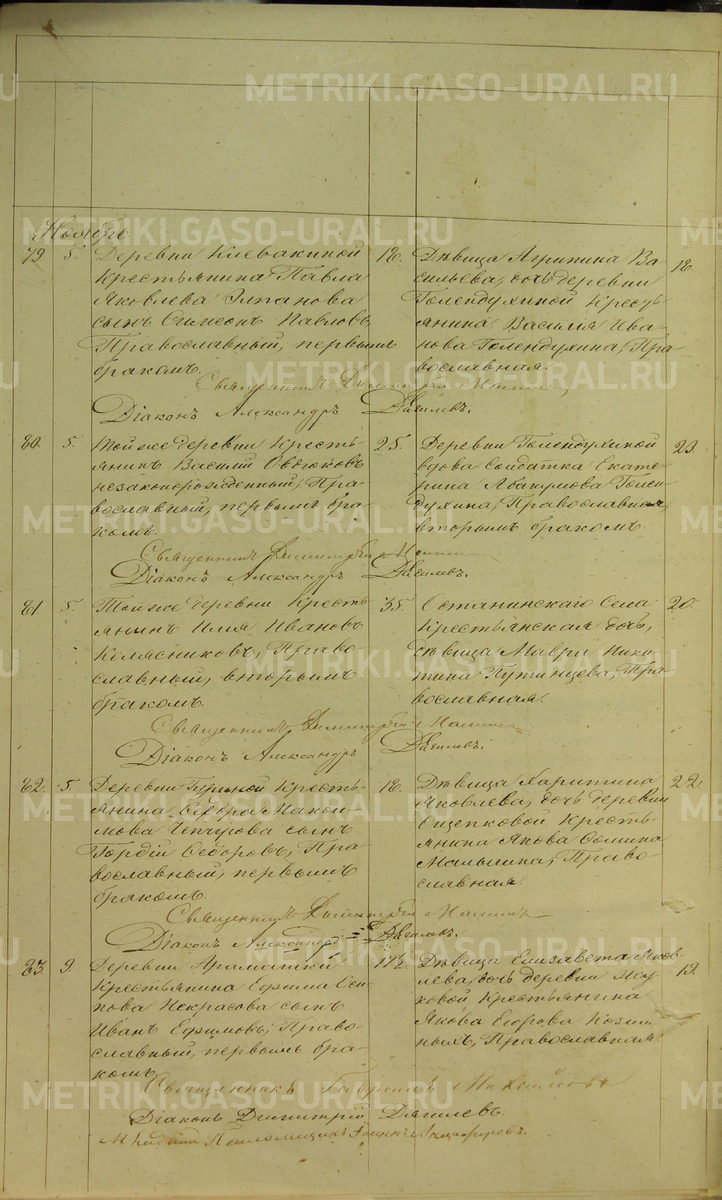 METRIKI.GASO-URAL.RU
Ноябрь
79 5. Деревни Клевакиной
Крестьянина Павла
Яковлева
сынъ Симеонъ Павловъ,
Православный, первымъ
бракомъ.
18.
Дѣвица Ва-
сильева, дочь деревни
Голендухиной Кресть-
янина Василія Ива-
нова Голендухина, Пра-
вославная.
18.
Священникъ Димитрій
Діаконъ Александръ Дягилевъ.
80. 5. Той же деревни Кресть-
янинъ Василій
незаконорожденный, Пра-
вославный, первымъ бра-
комъ.
25.
Деревни Голендухиной
вдова Солдатка Екате-
рина Абакумова Голен-
духина, Православная,
вторымъ бракомъ
23.
Священникъ Димитрій
Діаконъ Александръ Дягилевъ.
81. 5. Той же деревни Кресть-
янинъ Илья Ивановъ
Колясниковъ, Право-
славный, вторымъ
бракомъ.
35.
Останинскаго Села
Крестьянская дочь,
дѣвица Мавра Ники-
тина Путинцева, Пра-
вославная.
20.
Священникъ Димитрій
Діаконъ Александръ Дягилевъ.
82. 5. Деревни Кресть-
янина Ѳедора Макси-
мова сынъ
Гордій Ѳедоровъ, Пра-
вославный, первымъ
бракомъ.
18.
Дѣвица Харитина
Яковлева, дочь деревни
Ощепковой Кресть-
янина Якова
Малыгина, Право-
славная.
22.
Священникъ Димитрій
Діаконъ Александръ Дягилевъ.
83 9. Деревни
Крестьянина Ефима Оси-
пова Некрасова сынъ
Иванъ Ефимовъ, Право-
славный, первымъ бра-
комъ.
17½.
Дѣвица Елизавета Яков-
лева, дочь деревни
Крестьянина
Якова Егорова
Православная.
19.
Священникъ Гавріилъ
Діаконъ Димитрій Дягилевъ